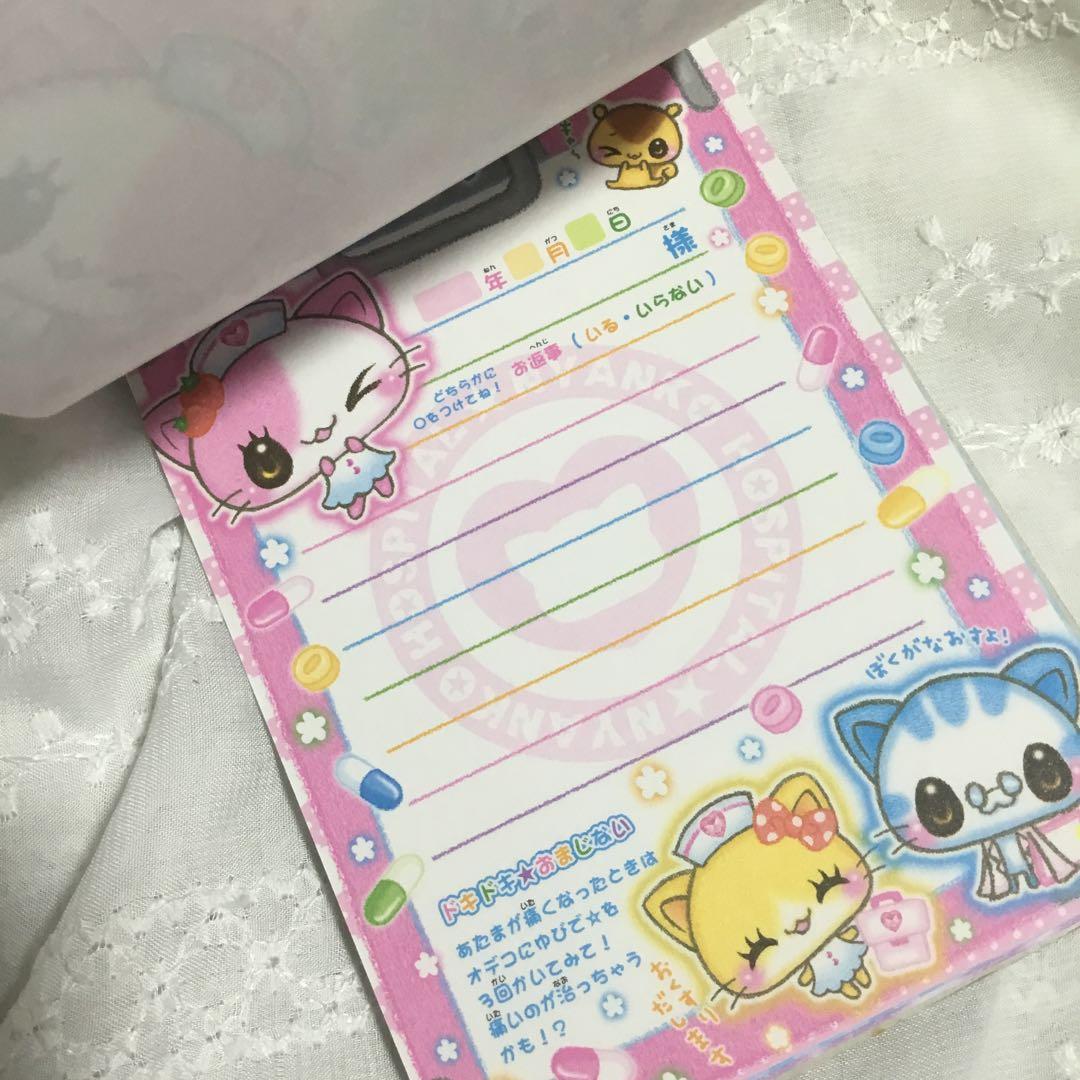 年月日
ねん がつ にち
様
さま
どちらかに
○をつけてね！
お返事（いる・いらない）
へんじ
NYANKO HOSPITAL★NYANKO HOSPITAL
ぼくがなおすよ！
ドキドキ★おまじない
あたまが痛くなったときは
いた
オデコにゆびで☆を
3回かいてみて！
かい
痛いのが治っちゃう
いた なお
かも！？
おくすり
だします